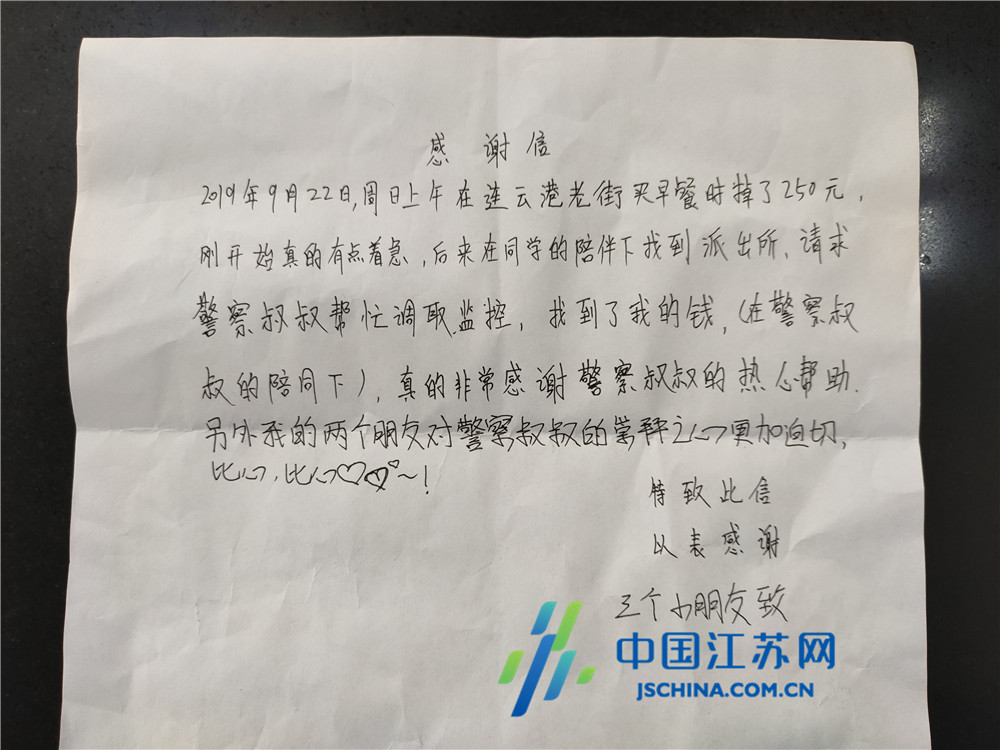 感谢信
2019年9月22日,周日上午在连云港老街买早餐时掉了250元,
刚开始真的有点着急,后来在同学的陪伴下找到派出所,请求
警察叔叔帮忙调取监控,找到了我的钱,(在警察叔
叔的陪同下),真的非常感谢警察叔叔的热心帮助.
另外我的两个朋友对警察叔叔的崇拜之心更加迫切,
比心,比心♡♡♡~!
特致此信
以表感谢
三个小朋友致
中国江苏网
JSCHINA.COM.CN